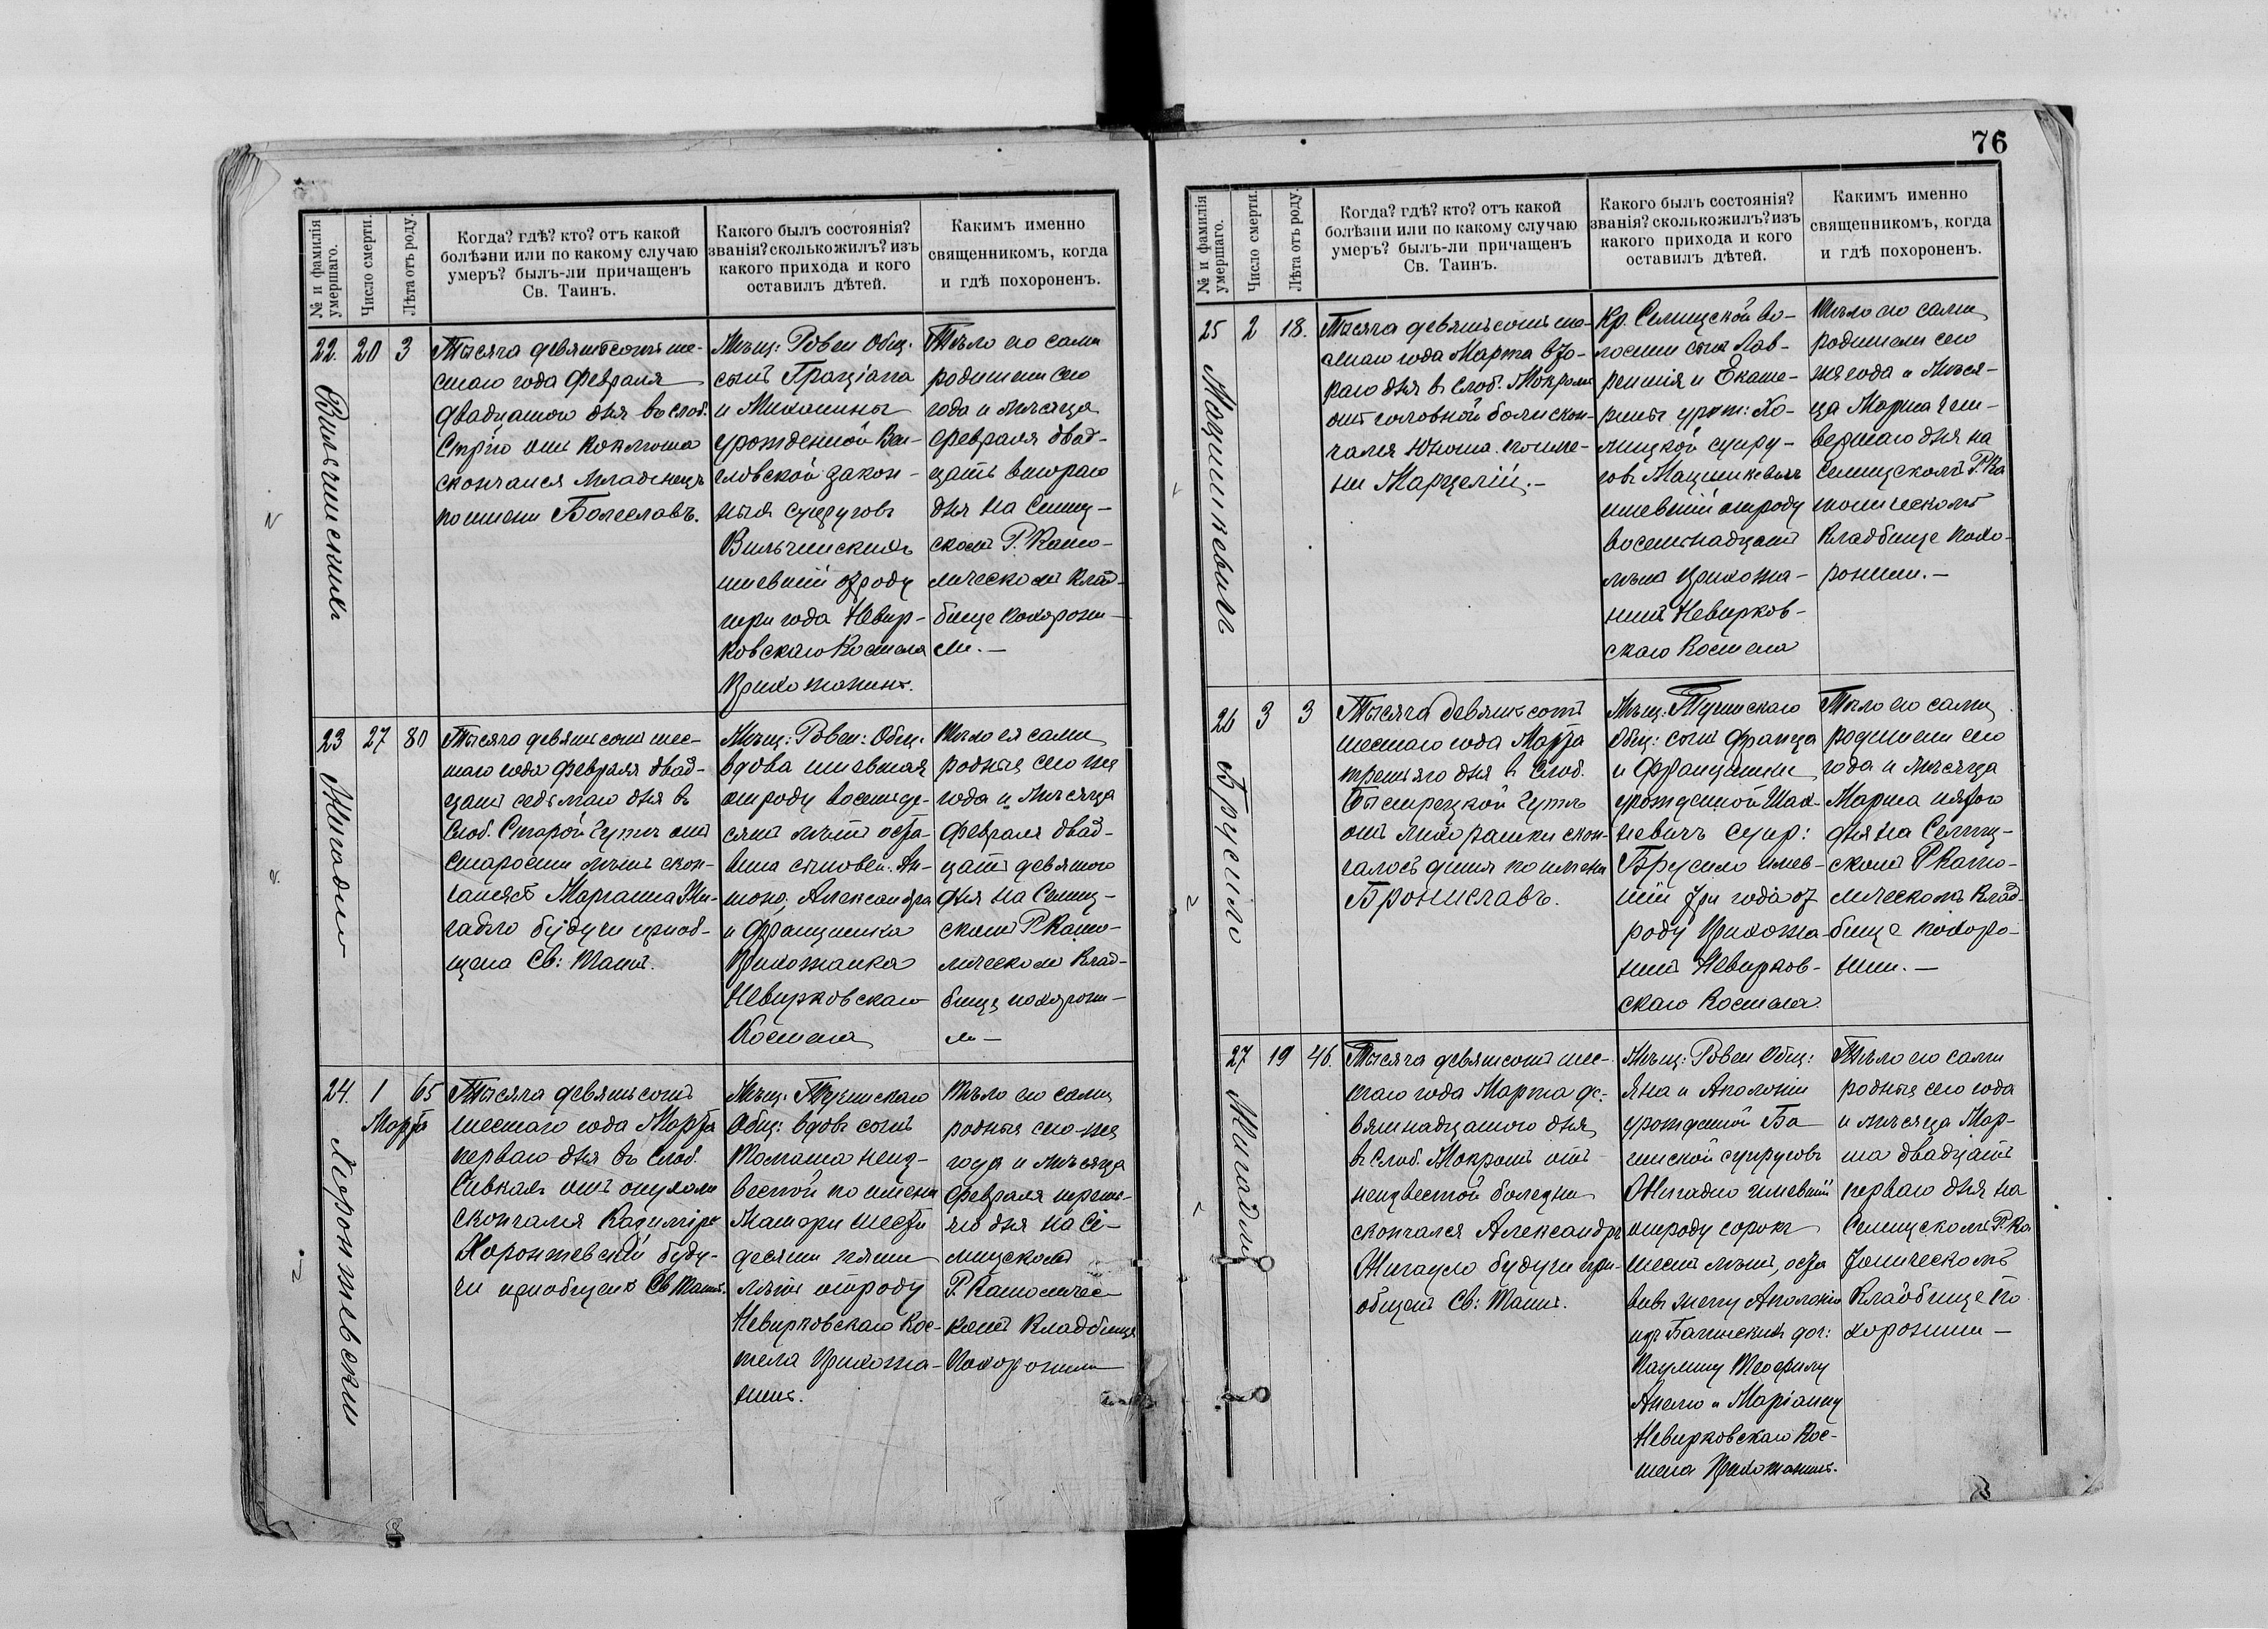 76
№ и фамилія умершаго.
Число смерти.
Лѣта отъ роду.
Когда? гдѣ? кто? отъ какой
болѣзни или по какому случаю
умеръ? былъ-ли причащенъ
Св. Таинъ.
Какого былъ состоянія?
званія? сколько жилъ? изъ
какого прихода и кого
оставилъ дѣтей.
Какимъ именно
священникомъ, когда
и гдѣ похороненъ.
22. 20 3
Вильчинскихъ
Тысяча девятьсотъ ше-
стаго года Февраля
двадцатого дня въ Слоб.
отъ коклюша
скончался младенецъ
по имени Болеславъ.
Мѣщ: Ровен Общ:
сынъ Граціана
и Михалины
урожденной
закон-
ныхъ супруговъ
Вильчинскихъ
имевшій отроду
три года Невир-
ковскаго Костела
Прихожанинъ.
Тѣло его сами
родители сего
года и мѣсяца
Февраля двад-
цать втораго
дня на Селищ-
скомъ Р. Като-
лическомъ клад-
бище похорони-
ли. —
23 27 80
Жигадло
Тысяча девятьсотъ шес-
таго года Февраля двад-
цать седьмаго дня въ
Слоб. Старой Гутѣ отъ
старости лѣтъ скон-
чалась Маріанна Жи-
гадло будучи приоб-
щена Св: Таинъ.
Мѣщ: Ровен: Общ:
вдова имевшая
отроду восемьде-
сятъ лѣтъ оста-
вила сыновей: Ан-
тона, Александра
и Францишка
Прихожанка
Невирковскаго
Костела
Тѣло ея сами
родные сего же
года и мѣсяца
Февраля двад-
цать девятого
дня на Селищ-
скомъ Р Като-
лическомъ Клад-
бище похорони-
ли —
24. 1 65
Марта
Хоронжевскій
Тысяча девятьсотъ
шестаго года Марта
перваго дня въ Слоб.
Сивкахъ отъ опухоли
скончался Казиміръ
Хоронжевскій буду-
чи приобщенъ Св Таинъ.
Мѣщ: Тучинскаго
Общ: вдовъ сынъ
Томаша неиз-
вестной по имени
Матери шесть
десятъ пять
лѣтъ отроду
Невирковскаго Кос-
тела Прихожа-
нинъ.
Тѣло его сами
родные сего-же
года и мѣсяца
Февраля треть-
яго дня на Се-
лищскомъ
Р. Католичес-
комъ Кладбище
Похоронили
№ и фамилія умершаго.
Число смерти.
Лѣта отъ роду.
Когда? гдѣ? кто? отъ какой
болѣзни или по какому случаю
умеръ? былъ-ли причащенъ
Св. Таинъ.
Какого былъ состоянія?
званія? сколько жилъ? изъ
какого прихода и кого
оставилъ дѣтей.
Какимъ именно
священникомъ, когда
и гдѣ похороненъ.
25 2 18.
Мацинкевичъ
Тысяча девятьсотъ ше-
стаго года Марта вто-
раго дня въ Слоб. Мокромъ
отъ головной боли скон-
чался Юноша по име-
ни Марцелій. —
Кр. Селищской во-
лости сынъ Лав-
рентія и Екате-
рины урож: Хо-
мицкой супру-
говъ Мацинкевичъ
имевшій отроду
восемьнадцать
лѣтъ Прихожа-
нинъ Невирков-
скаго Костела
Тѣло его сами
родители сего
же года и Мѣся-
ца Марта чет-
вертаго дня на
Селищскомъ Р. Ка
толическомъ
Кладбище похо-
ронили. —
26 3 3
Брусило
Тысяча девятьсотъ
шестаго года Марта
третьяго дня въ Слоб.
Быстрецкой Гутѣ
отъ лихорадки скон-
чалось дитя по имени
Брониславъ.
Мѣщ: Тучинскаго
Общ: сынъ Франца
и Францишки
урожденной
супр:
Брусило имев-
шій три года от
роду Прихожа-
нинъ Невирков-
скаго Костела.
Тѣло его сами
родители сего
года и мѣсяца
Марта пятого
дня на Селищ-
скомъ Р Като-
лическомъ Клад-
бище похоро-
нили. —
27 19 46.
Жигадло
Тысяча девятьсотъ шес-
таго года Марта де-
вятнадцатого дня
въ Слоб. Мокромъ отъ
неизвестной болезни
скончался Александръ
Жигадло будучи при-
общенъ Св: Таинъ.
Мѣщ: Ровен Общ:
Яна и Аполоніи
урожденной Ба
гинской супруговъ
Жигадло имевшій
отроду сорокъ
шесть лѣтъ, оста
вивъ жену Аполонію
изъ Багинскихъ доч:
Паулину Теофилу
Анелю и Маріанну
Невирковскаго Кос-
тела Прихожанинъ.
Тѣло его сами
родные сего года
и мѣсяца Мар-
та двадцать
перваго дня на
Селищскомъ Р. Ка
толическомъ
Кладбище по
хоронили —